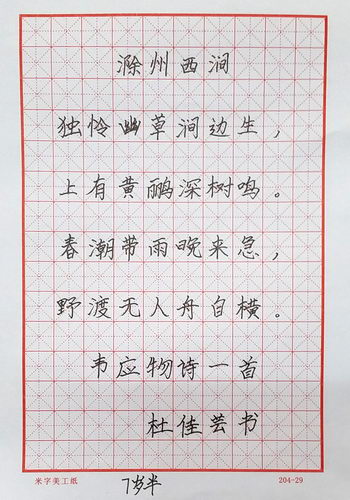 滁州西涧
独怜幽草涧边生，
上有黄鹂深树鸣。
春潮带雨晚来急，
野渡无人舟自横。
韦应物诗一首
杜佳芸书
米字美工纸 204-29
7岁半